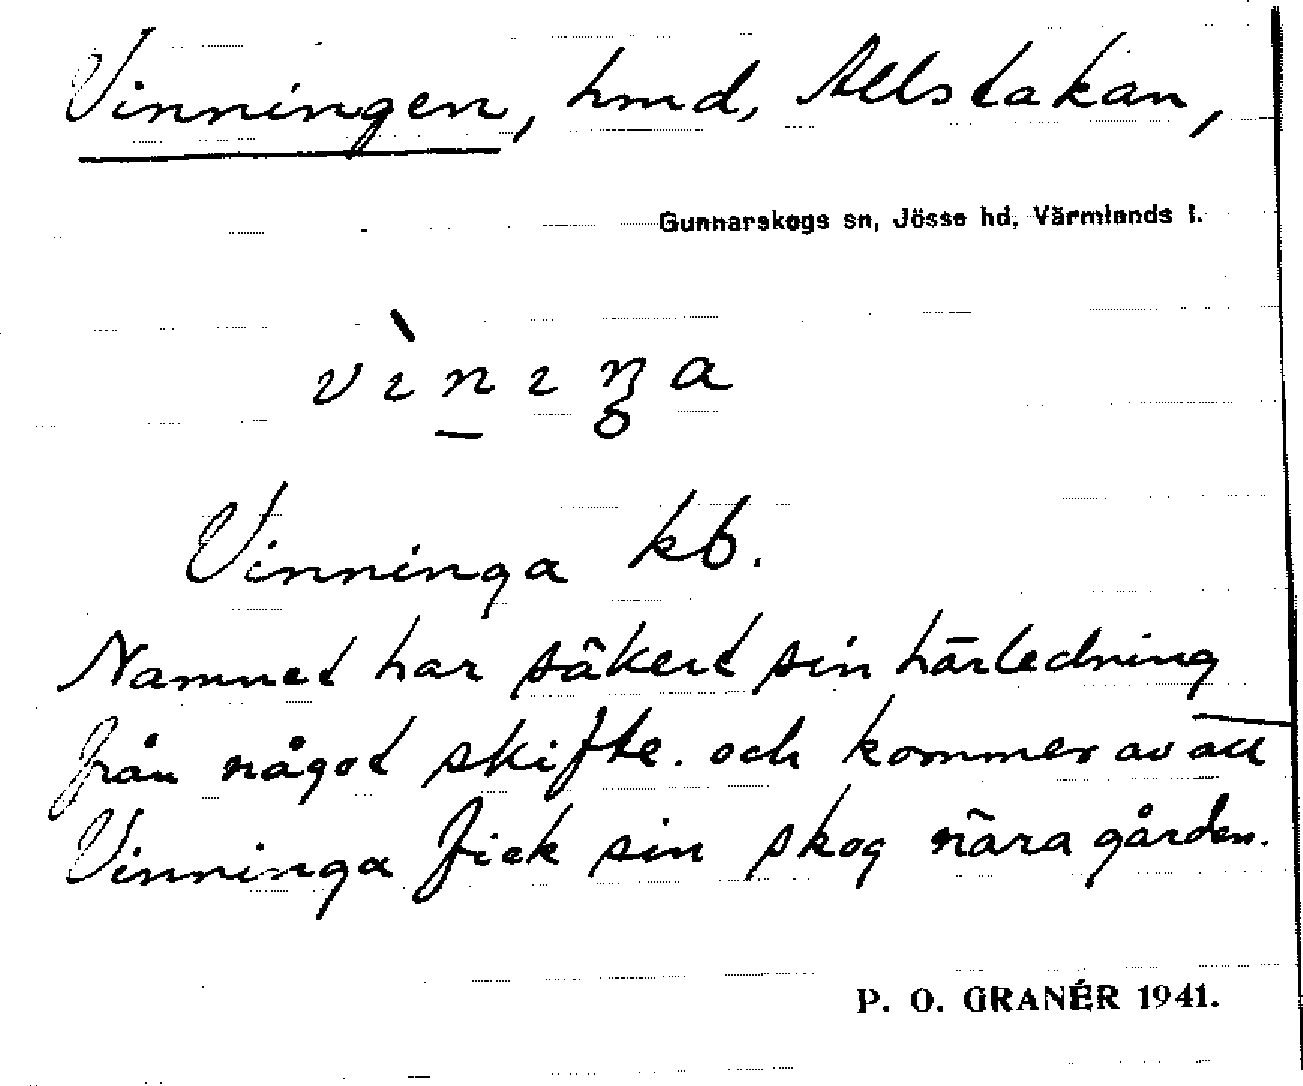 Vinningen, hmd, Allstakan,
Gunnarskogs sn, Jösse hd, Värmlands l.
vìniŋa
Vinninga kb.
Namnet har säkert sin härledning
från något skifte. och kommer av att
Vinninga fick sin skog nära gården.
P. O. GRANÉR 1941.